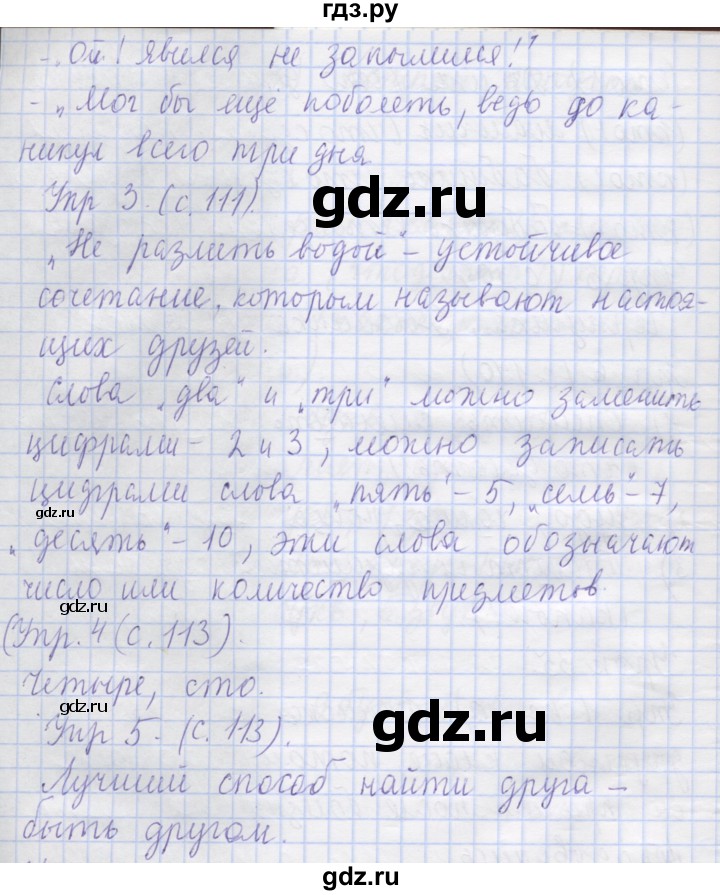 гдз.ру
- „Ой! явился не запылился!"
- „Мог бы ещё поболеть, ведь до ка-
никул всего три дня
Упр 3. (с. 111).
gdz.ru
„Не разлить водой" - устойчивое
сочетание, которым называют настоя-
щих друзей.
Слова „два" и „три" можно заменить
цифрами - 2 и 3, можно записать
цифрами слова „пять" - 5, „семь" - 7,
gdz.ru
„десять" - 10, эти слова обозначают
число или количество предметов.
gdz.ru
(Упр. 4 (с. 113).
Четыре, сто.
gdz.ru
Упр 5. (с. 113).
Лучший способ найти друга -
быть другом.
gdz.ru